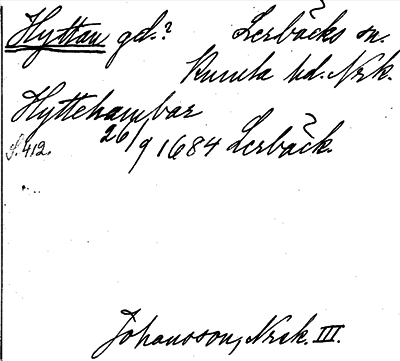 Hyttan gd.? Lerbäcks sn.
Kumla hd. Nrk.
Hyttehambar
S. 412. 26/9 1684 Lerbäck.
Johansson, Nrk. III.